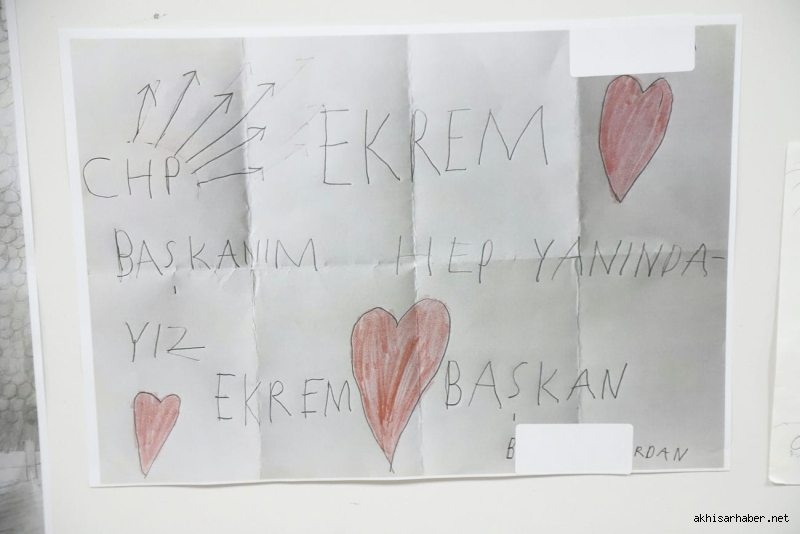 CHP EKREM
BAŞKANIM HEP YANINDA-
YIZ
EKREM BAŞKAN
akhisarhaber.net